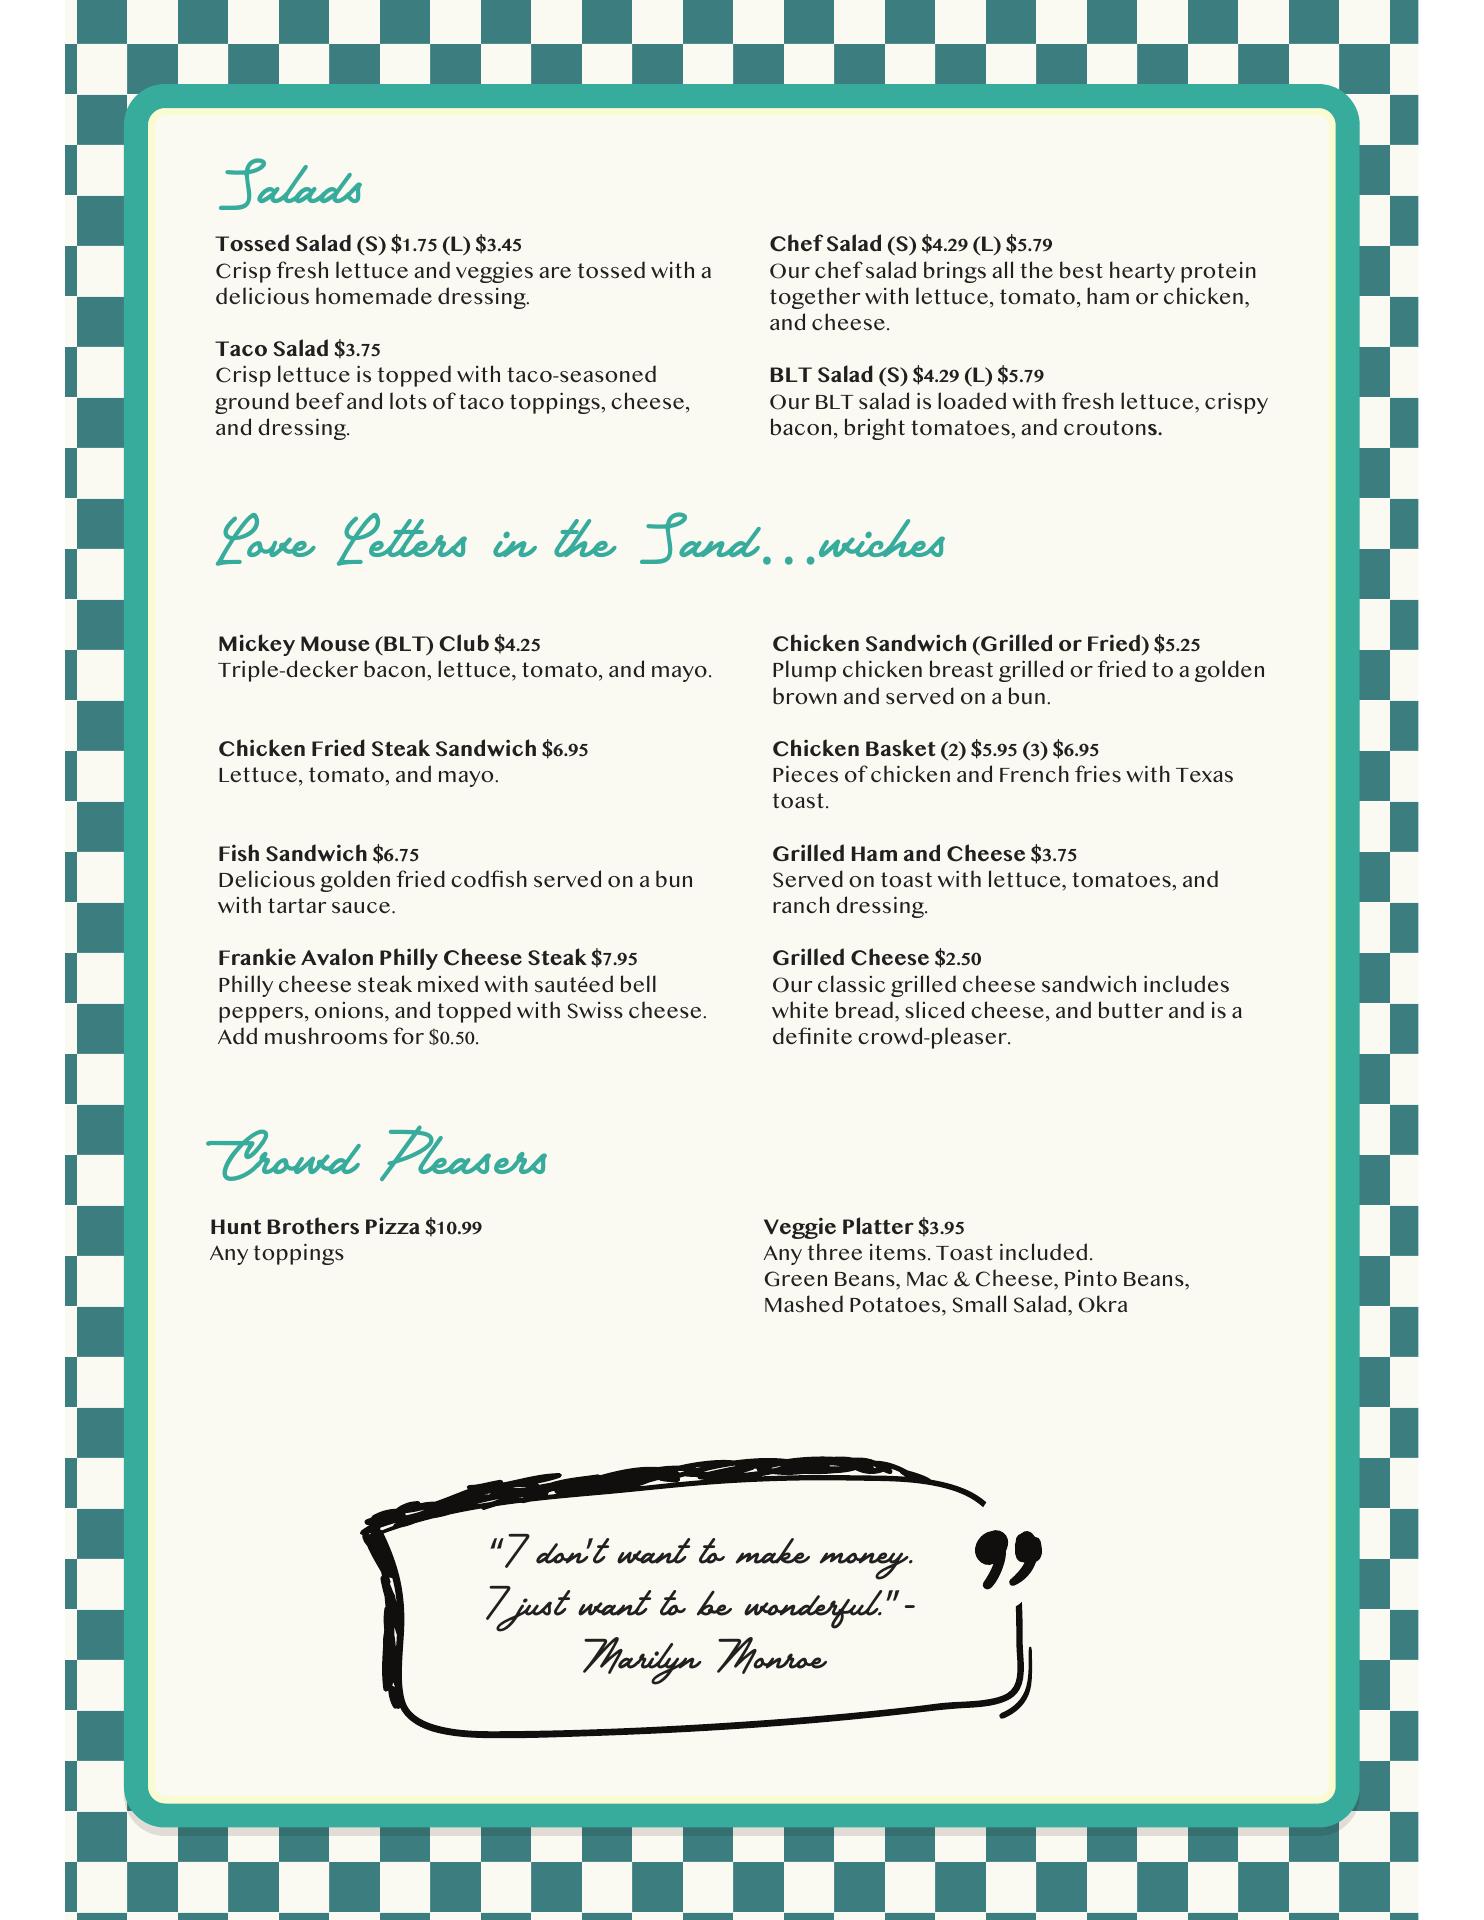 Salads
Tossed Salad (S) $1.75 (L) $3.45
Crisp fresh lettuce and veggies are tossed with a
delicious homemade dressing.
Taco Salad $3.75
Crisp lettuce is topped with taco-seasoned
ground beef and lots of taco toppings, cheese,
and dressing.
Chef Salad (S) $4.29 (L) $5.79
Our chef salad brings all the best hearty protein
together with lettuce, tomato, ham or chicken,
and cheese.
BLT Salad (S) $4.29 (L) $5.79
Our BLT salad is loaded with fresh lettuce, crispy
bacon, bright tomatoes, and croutons.
Love Letters in the Sand...wiches
Mickey Mouse (BLT) Club $4.25
Triple-decker bacon, lettuce, tomato, and mayo.
Chicken Fried Steak Sandwich $6.95
Lettuce, tomato, and mayo.
Fish Sandwich $6.75
Delicious golden fried codfish served on a bun
with tartar sauce.
Frankie Avalon Philly Cheese Steak $7.95
Philly cheese steak mixed with sautéed bell
peppers, onions, and topped with Swiss cheese.
Add mushrooms for $0.50.
Chicken Sandwich (Grilled or Fried) $5.25
Plump chicken breast grilled or fried to a golden
brown and served on a bun.
Chicken Basket (2) $5.95 (3) $6.95
Pieces of chicken and French fries with Texas
toast.
Grilled Ham and Cheese $3.75
Served on toast with lettuce, tomatoes, and
ranch dressing.
Grilled Cheese $2.50
Our classic grilled cheese sandwich includes
white bread, sliced cheese, and butter and is a
definite crowd-pleaser.
Crowd Pleasers
Hunt Brothers Pizza $10.99
Any toppings
Veggie Platter $3.95
Any three items. Toast included.
Green Beans, Mac & Cheese, Pinto Beans,
Mashed Potatoes, Small Salad, Okra
"I don't want to make money.
I just want to be wonderful." -
Marilyn Monroe